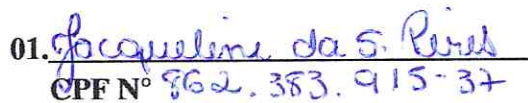 01. Jacqueline da S. Pires
CPF Nº 862.383.915-37